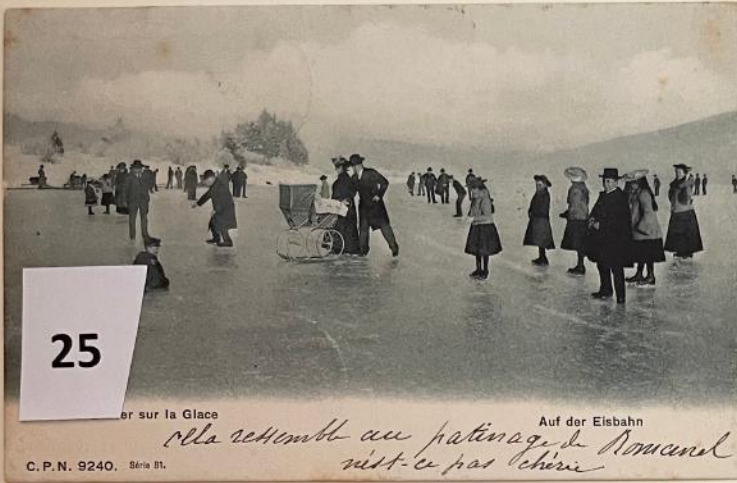 25
er sur la Glace
Auf der Eisbahn
cela ressemble au patinage de Romanel
n'est-ce pas chérie
C.P.N. 9240. Série 81.